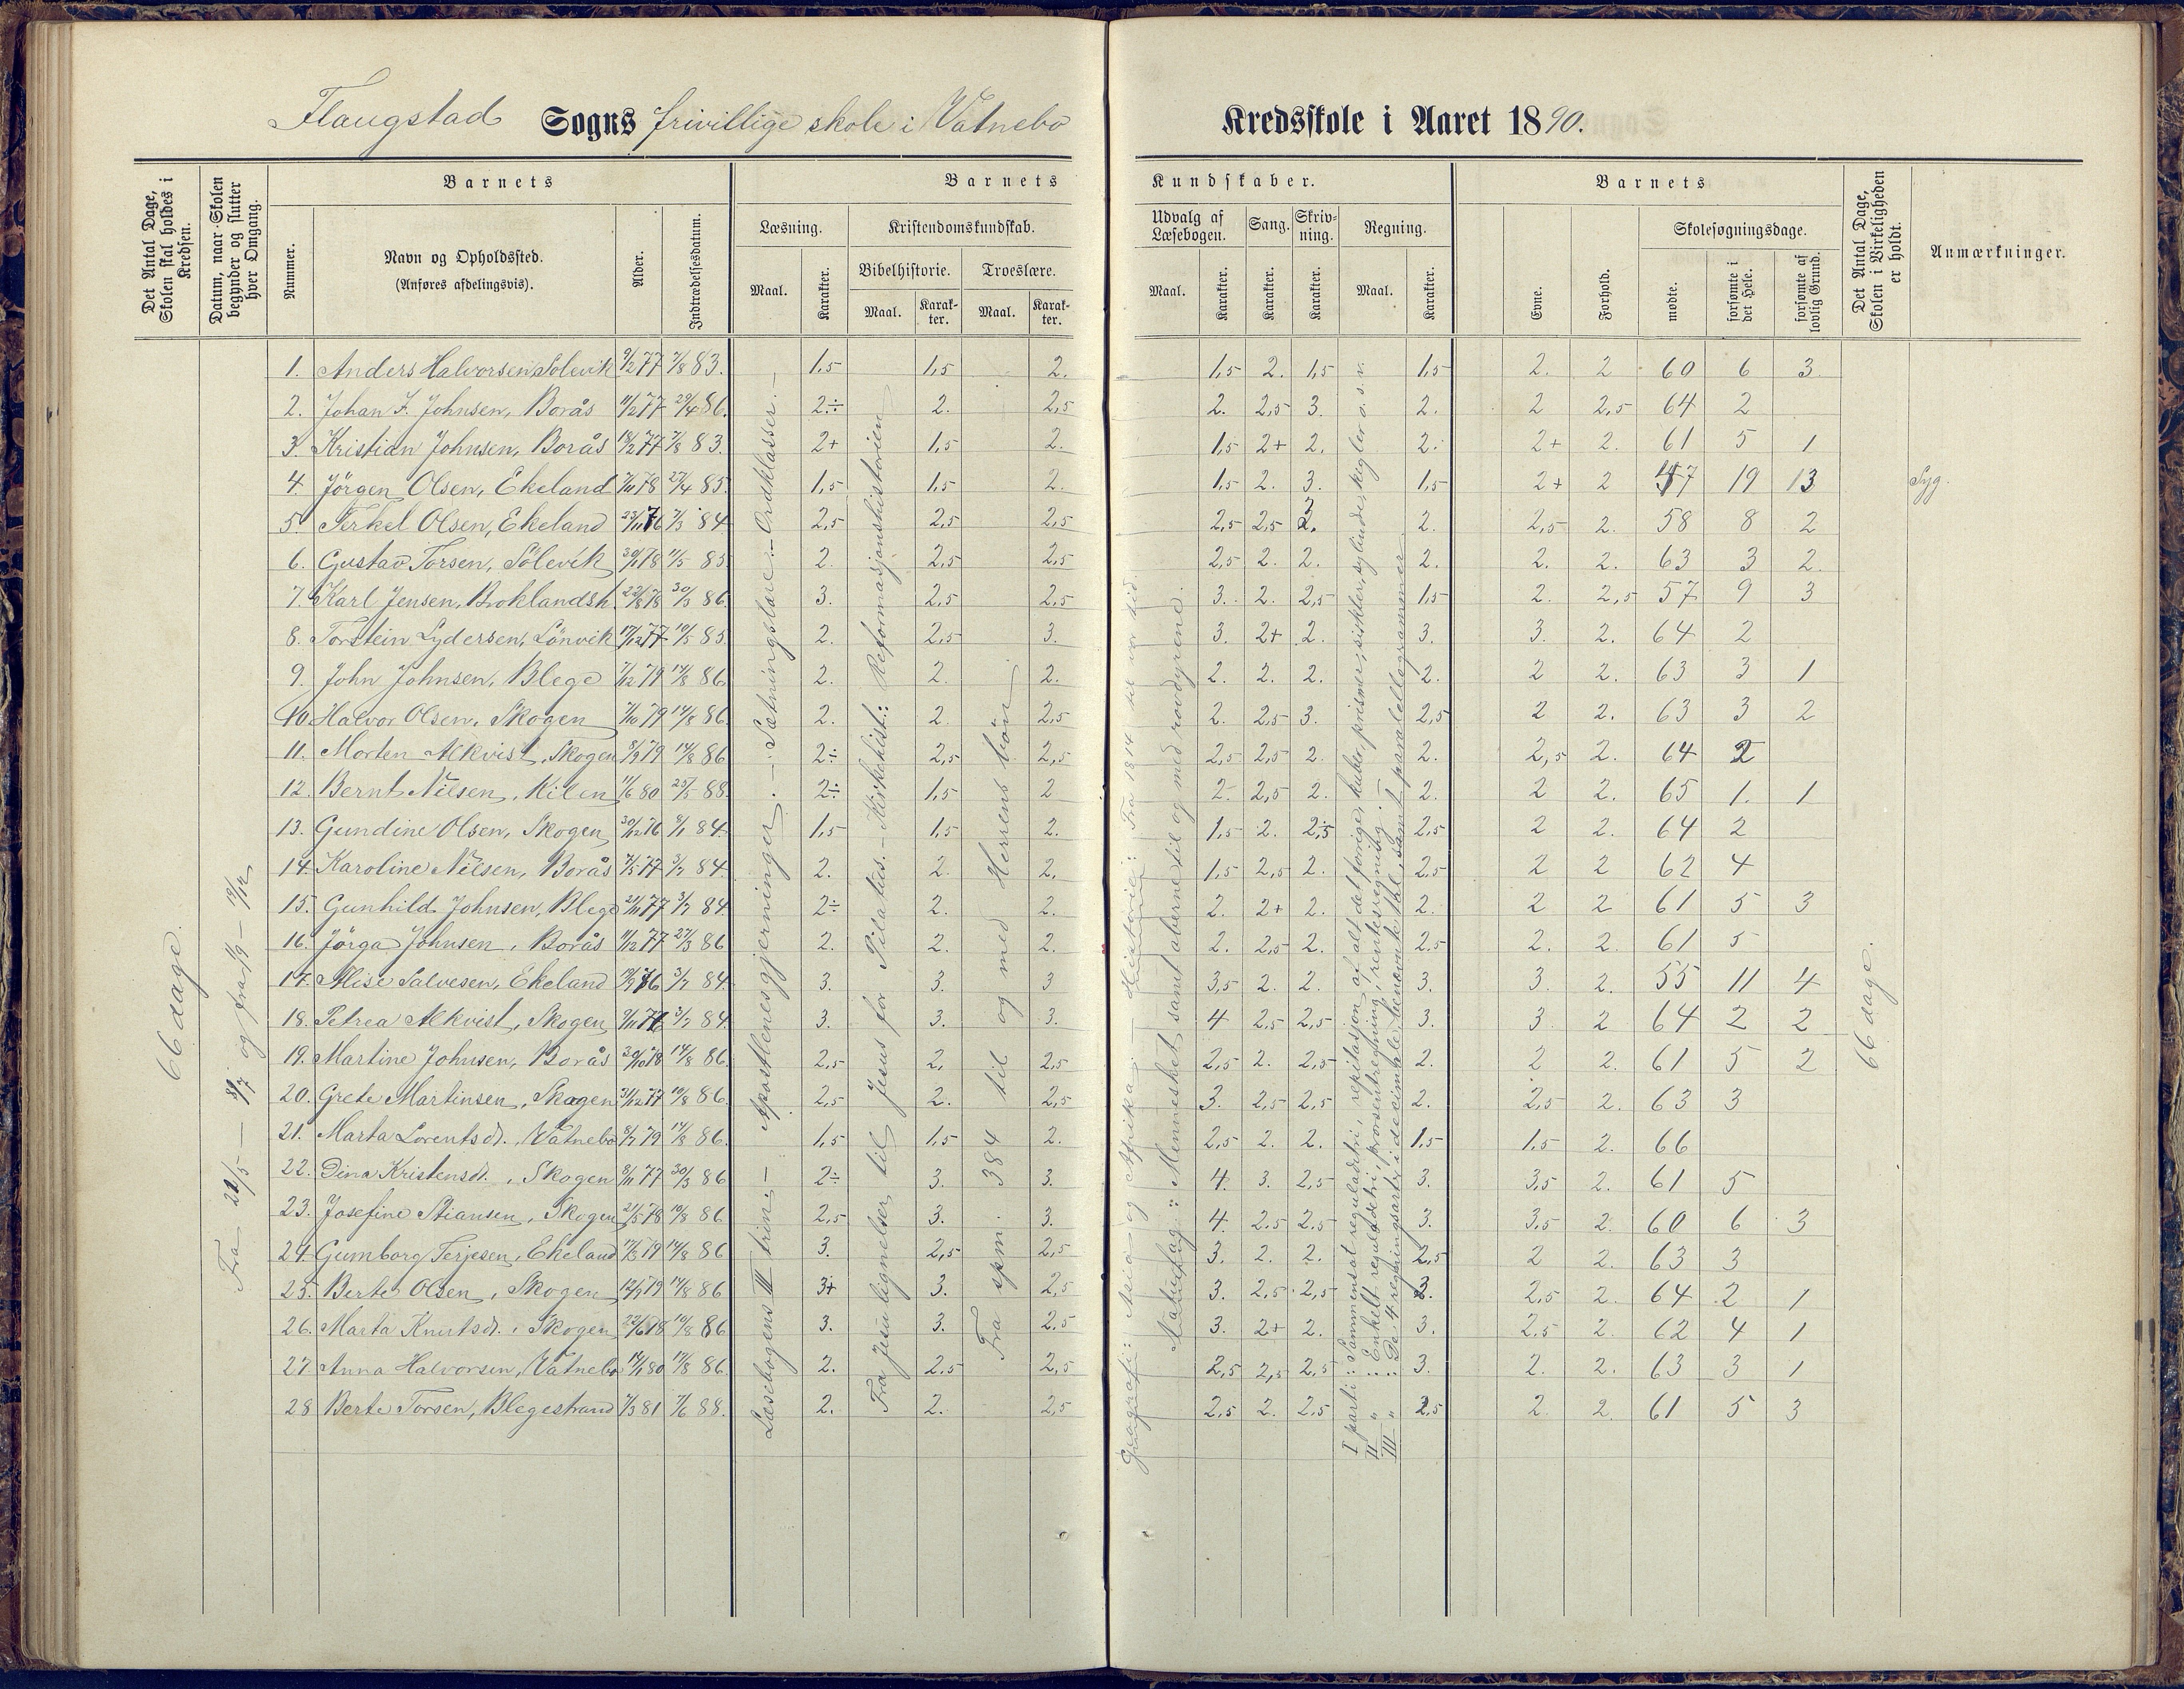 Flaugstad Sogns frivillige skole i Vatnebo Kredsskole i Aaret 1890.
Det Antal Dage, Skolen skal holdes i Kredsen.
Datum, naar Skolen begynder og slutter hver Omgang.
Barnets
Nummer.
Navn og Opholdssted.
(Anføres afdelingsvis).
Alder.
Indtrædelsesdatum.
Barnets Kundskaber.
Læsning.
Maal.
Karakter.
Kristendomskundskab.
Bibelhistorie.
Maal.
Karakter.
Troeslære.
Maal.
Karakter.
Udvalg af Læsebogen.
Maal.
Karakter.
Sang.
Karakter.
Skrivning.
Karakter.
Regning.
Maal.
Karakter.
Barnets
Evne.
Forhold.
Skolesøgningsdage.
mødte.
forsømte i det Hele.
forsømte af lovlig Grund.
Det Antal Dage, Skolen i Virkeligheden er holdt.
Anmærkninger.
66 dage.
og fra 1/9 –
Læsebogens III trin. – Apostlenes gjerninger. – Sætningslære. – Ordklasser. –
Fra Jesu lignelser til Jesus for Pilatus. – Kirkehist.: Reformasjonshistorien
Fra spm. 384 til og med Herrens bøn
Geografi: Asia og Afrika. – Historie: Fra 1814 til vor tid.
Naturfag: Mennesket samt aberne til og med rovdyrene.
I parti: Sammensat reguladetri, repitasjon af alt det forrige, kuber, prismer, sirkler, sylinder, kigler o. s. v.
II " : Enkelt reguladetri, prosentregning, rentesregning.
III " : De 4 regningsarter i decimale, benævnte tal, samt paralellogrammer
66 dage.
1. Anders Halvorsen Solevik 9/2 77 7/8 83. 1,5 1,5 2. 1,5 2. 1,5 1,5 2. 2 60 6 3.
2. Johan F. Johnsen, Borås 11/2 77 29/4 86. 2÷ 2. 2,5 2. 2,5 3. 2. 2 2,5 64 2
3. Kristian Johnsen, Borås 18/2 77 7/8 83. 2+ 1,5 2. 1,5 2+ 2. 2. 2+ 2. 61 5 1
4. Jörgen Olsen, Ekeland 7/11 78 27/4 85. 1,5 1,5 2. 1,5 2. 3. 1,5 2+ 2 47 19 13 Syg.
5. Terkel Olsen, Ekeland 23/11 76 7/3 84 2,5 2,5 2,5 2,5 2,5 3. 2. 2,5 2. 58 8 2
6. Gustav Torsen, Sölevik 11/5 85 2. 2,5 2,5 2,5 2. 2. 2. 2. 2. 63 3 2.
7. Karl Jensen, Broklandsh. 22/8 78 30/3 86 3. 2,5 2,5 3. 2. 2,5 1,5 2. 2,5 57 9 3
8. Torstein Lydersen, Lönvik 17/12 77 19/5 85 2. 2,5 3. 3. 2+ 2. 3. 3. 2. 64 2
9. John Johnsen, Blege 7/12 79 14/8 86 2. 2. 2. 2. 2. 2. 2. 2 2. 63 3 1
10. Halvor Olsen, Skogen 7/10 79 14/8 86 2. 2. 2,5 2. 2,5 3. 2,5 2 2. 63 3 2
11. Morten Alkvist, Skogen 8/9 79 14/8 86 2÷ 2,5 2,5 2,5 2,5 2. 2. 2,5 2. 64 2
12. Bernt Nilsen, Kilen 11/6 80 25/5 88. 2÷ 1,5 2 2. 2,5 2. 2. 2 2. 65 1. 1
13. Gundine Olsen, Skogen 30/12 76 8/1 84 1,5 1,5 2. 1,5 2. 2,5 2,5 2 2. 64 2
14. Karoline Nilsen, Borås 7/5 77 3/7 84. 2. 2. 2. 1,5 2,5 2. 2,5 2 2 62 4
15. Gunhild Johnsen, Blege 21/11 77 3/7 84. 2÷ 2. 2. 2. 2+ 2. 2. 2 2 61 5 3
16. Jörga Johnsen, Borås 11/12 77 27/3 86 2. 2. 2. 2. 2,5 2. 2,5 2. 2. 61 5
17. Alise Salvesen, Ekeland 19/9 76 3/7 84. 3. 3. 3 3,5 2. 2. 3. 3. 2. 55 11 4
18. Petrea Alkvist, Skogen 9/11 76 3/7 84. 3. 3. 3. 4 2,5 2,5 3. 3. 2 64 2 2
19. Martine Johnsen, Borås 30/10 78 14/8 86. 2,5 2. 2,5 2,5 2. 2,5 2. 2 2. 61 5 2
20. Grete Martinsen, Skogen 31/12 77 19/8 86. 2,5 2. 2,5 3. 2,5 2,5 2. 2,5 2. 63 3
21. Marta Lorentsd., Vatnebo 8/7 79 14/8 86. 1,5 1,5 2. 2,5 2. 2. 1,5 1,5 2. 66
22. Dina Kristensd., Skogen 8/11 77 30/3 86 2÷ 3. 3. 4. 3. 2,5 3. 3,5 2. 61 5
23. Josefine Stiansen, Skogen 21/5 78 19/8 86 2,5 3. 3. 4. 2,5 2,5 3. 3,5 2. 60 6 3
24. Gumborg Terjesen, Ekeland 14/8 86 3. 2,5 2,5 3. 2. 2. 2,5 2 2. 63 3
25. Berte Olsen, Skogen 12/9 79 14/8 86 3+ 3. 2,5 3. 2,5 2,5 3. 2,5 2. 64 2 1
26. Marta Knutsd., Skogen 22/6 78 19/8 86 3. 3. 2,5 3. 2+ 2. 3. 2,5 2. 62 4 1
27. Anna Halvorsen, Vatnebo 80 86. 2. 2,5 2,5 2,5 2,5 2,5 3. 2. 2. 63 3 1
28. Berte Torsen, Blegestrand 7/3 81 7/6 88. 2. 2. 2,5 2,5 2. 2,5 2,5 2. 2. 61 5 3